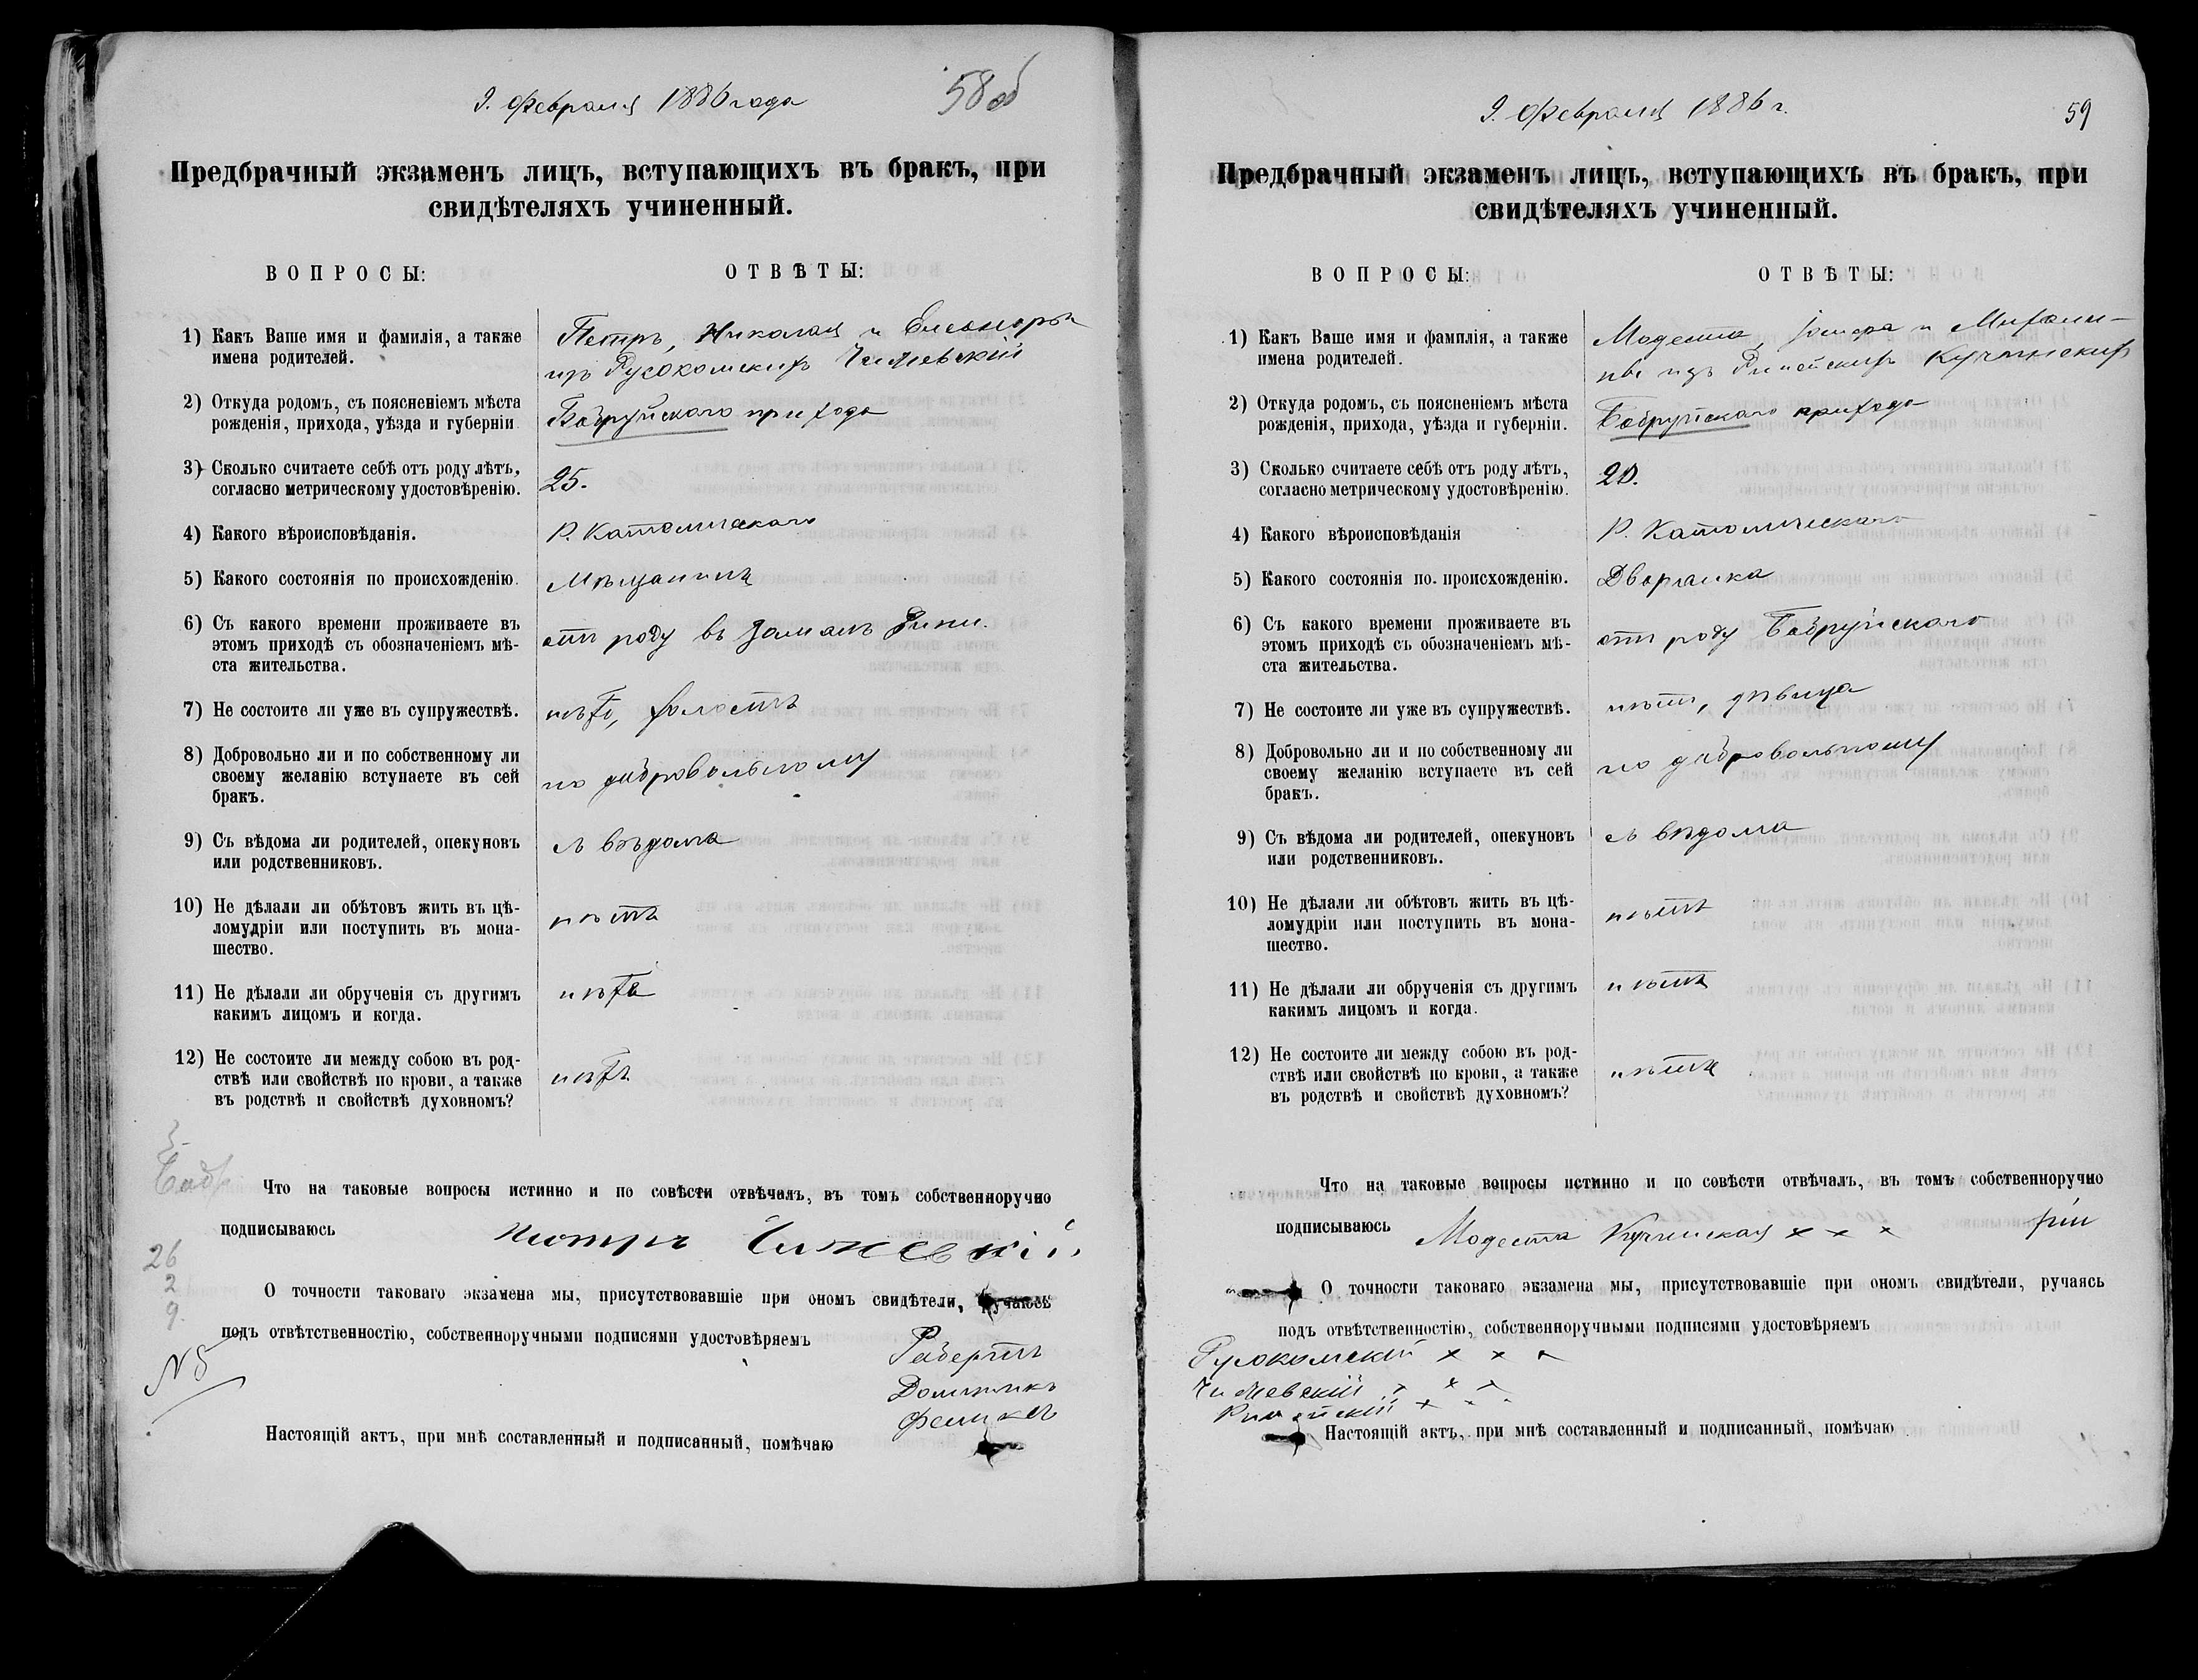 9. Февраля 1886 года
58 об
Предбрачный экзаменъ лицъ, вступающихъ въ бракъ, при
свидѣтеляхъ учиненный.
ВОПРОСЫ:
ОТВѢТЫ:
1) Какъ Ваше имя и фамилія, а также
имена родителей.
Петръ, Николая и Елеоноры
изъ Русохомскихъ Чижевскій
2) Откуда родомъ, съ поясненіемъ мѣста
рожденія, прихода, уѣзда и губерніи
Бобруйскаго прихода
3) Сколько считаете себѣ отъ роду лѣтъ,
согласно метрическому удостовѣренію.
25.
4) Какого вѣроисповѣданія.
Р. Католическаго
5) Какого состоянія по происхожденію.
Мѣщанинъ
6) Съ какого времени проживаете въ
этомъ приходѣ съ обозначеніемъ мѣ-
ста жительства.
отъ роду въ
7) Не состоите ли уже въ супружествѣ.
нѣтъ, холостъ
8) Добровольно ли и по собственному ли
своему желанію вступаете въ сей
бракъ.
по добровольному
9) Съ вѣдома ли родителей, опекуновъ
или родственниковъ.
съ вѣдома
10) Не дѣлали ли обѣтовъ жить въ цѣ-
ломудріи или поступить въ мона-
шество.
нѣтъ
11) Не дѣлали ли обрученія съ другимъ
какимъ лицомъ и когда.
нѣтъ
12) Не состоите ли между собою въ род-
ствѣ или свойствѣ по крови, а также
въ родствѣ и свойствѣ духовномъ?
нѣтъ
Что на таковые вопросы истинно и по совѣсти отвѣчалъ, въ томъ собственноручно
подписываюсь
Петръ Чижевскій
О точности таковаго экзамена мы, присутствовавшіе при ономъ свидѣтели, ручаясь
подъ отвѣтственностію, собственноручными подписями удостовѣряемъ
Робертъ
Доминикъ
Феликсъ
Настоящій актъ, при мнѣ составленный и подписанный, помѣчаю
26
2
9.
9. Февраля 1886 г.
59
Предбрачный экзаменъ лицъ, вступающихъ въ бракъ, при
свидѣтеляхъ учиненный.
ВОПРОСЫ:
ОТВѢТЫ:
1) Какъ Ваше имя и фамилія, а также
имена родителей.
Модеста, и Михали-
ны изъ Кучинскихъ
2) Откуда родомъ, съ поясненіемъ мѣста
рожденія, прихода, уѣзда и губерніи.
Бобруйскаго прихода
3) Сколько считаете себѣ отъ роду лѣтъ,
согласно метрическому удостовѣренію.
20.
4) Какого вѣроисповѣданія
Р. Католическаго
5) Какого состоянія по происхожденію.
Дворянка
6) Съ какого времени проживаете въ
этомъ приходѣ съ обозначеніемъ мѣ-
ста жительства.
отъ роду Бобруйскаго
7) Не состоите ли уже въ супружествѣ.
нѣтъ, дѣвица
8) Добровольно ли и по собственному ли
своему желанію вступаете въ сей
бракъ.
по добровольному
9) Съ вѣдома ли родителей, опекуновъ
или родственниковъ.
съ вѣдома
10) Не дѣлали ли обѣтовъ жить въ цѣ-
ломудріи или поступить въ мона-
шество.
нѣтъ
11) Не дѣлали ли обрученія съ другимъ
какимъ лицомъ и когда.
нѣтъ
12) Не состоите ли между собою въ род-
ствѣ или свойствѣ по крови, а также
въ родствѣ и свойствѣ духовномъ?
нѣтъ
Что на таковые вопросы истинно и по совѣсти отвѣчалъ, въ томъ собственноручно
подписываюсь
Модеста Кучинская x x x
О точности таковаго экзамена мы, присутствовавшіе при ономъ свидѣтели, ручаясь
подъ отвѣтственностію, собственноручными подписями удостовѣряемъ
Русохомскій x x x
Чижевскій x x x
x x x
Настоящій актъ, при мнѣ составленный и подписанный, помѣчаю